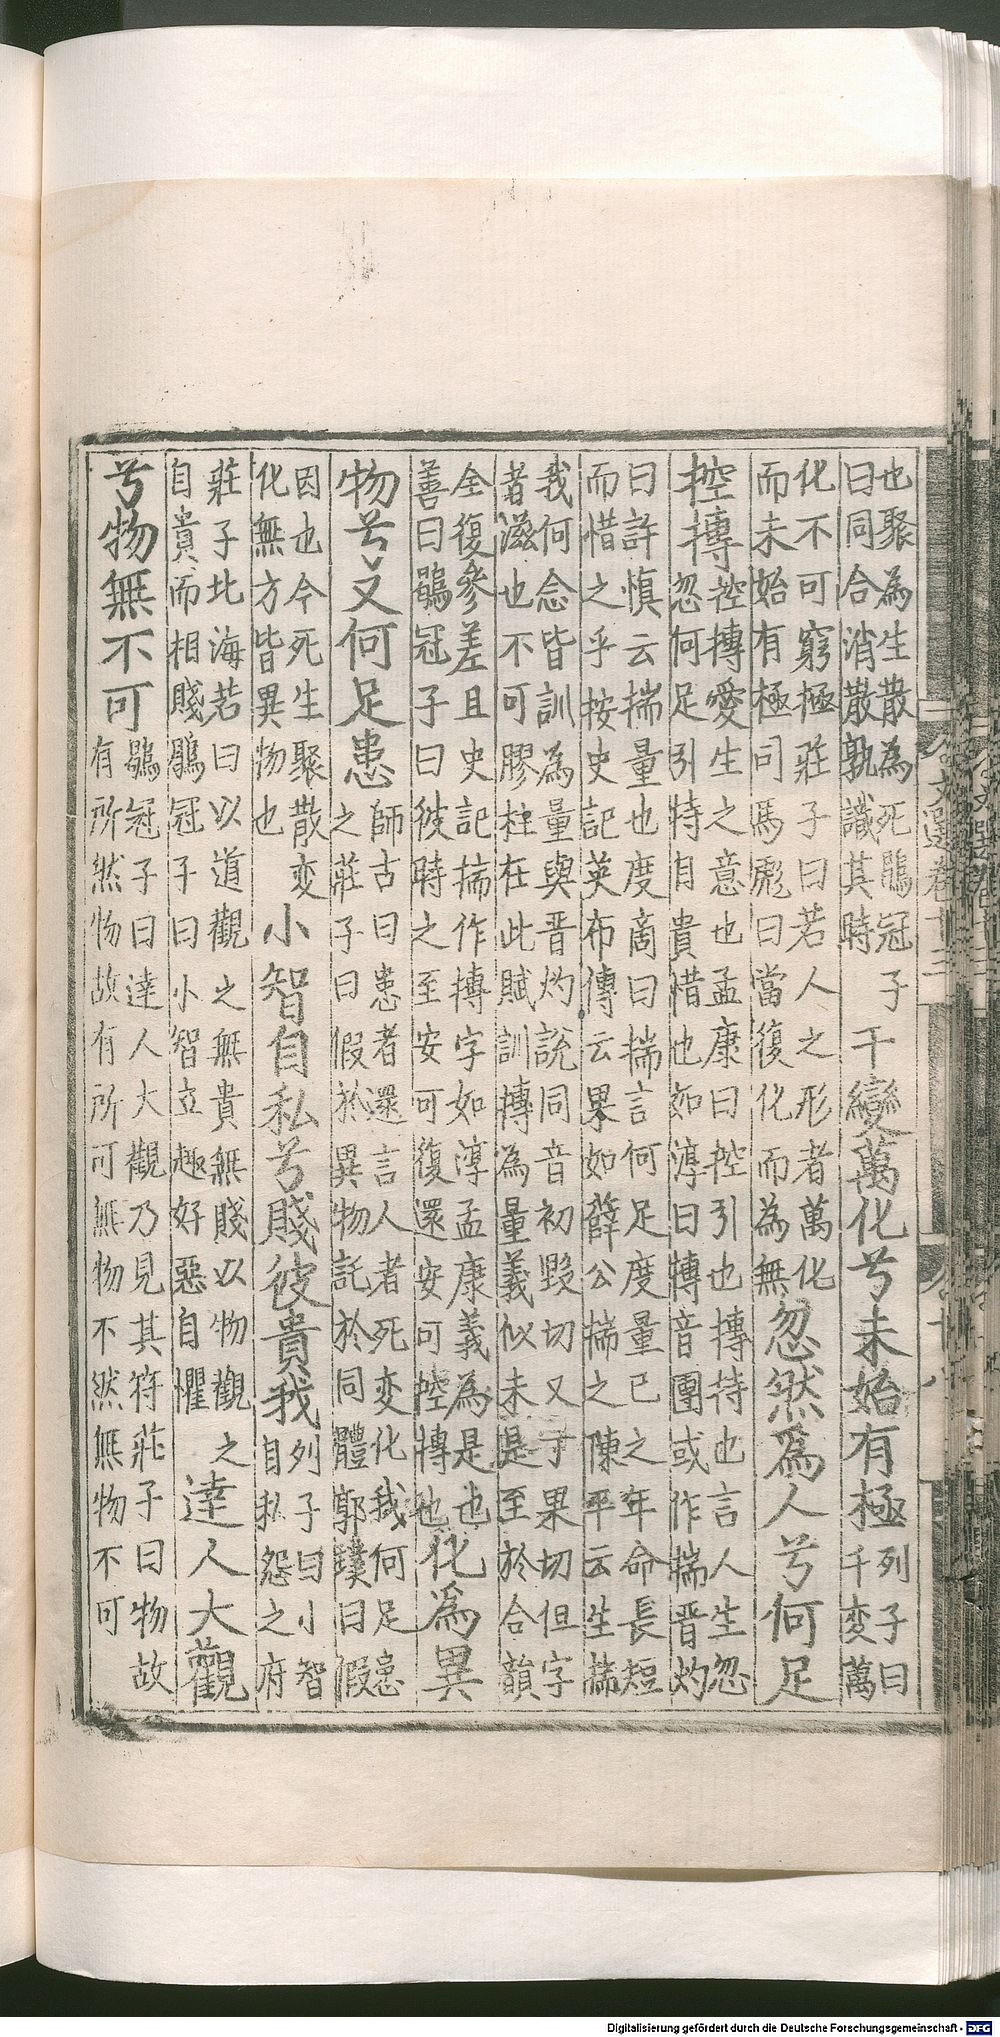 也聚為生散為死鶡冠子
曰同合消散孰識其時
千變萬化兮未始有極
列子曰
千変萬
化不可窮極莊子曰若人之形者萬化
而未始有極司馬彪曰當復化而為無
忽然爲人兮何足
控摶
控摶愛生之意也孟康曰控引也摶持也言人生忽
忽何足引特自貴惜也如淳曰摶音團或作揣晋灼
曰許慎云揣量也度商曰揣言何足度量己之年命長短
而惜之乎按史記英布傳云果如薛公揣之陳平云生揣
我何念皆訓為量與晋灼說同音初毀切又丁果切但字
者滋也不可膠柱在此賦訓摶為量義似未是至於合韻
全復參差且史記揣作摶字如淳孟康義為是也
善曰鶡冠子曰彼時之至安可復還安可控摶也
化爲異
物兮又何足患
師古曰患者還言人者死変化我何足患
之莊子曰假於異物託於同體郭璞曰假
因也今死生聚散変
化無方皆異物也
小智自私兮賤彼貴我
列子曰小智
自私怨之府
莊子北海若曰以道觀之無貴無賤以物觀之
自貴而相賤鶡冠子曰小智立趣好惡自懼
達人大觀
兮物無不可
鶡冠子曰達人大觀乃見其符莊子曰物故
有所然物故有所可無物不然無物不可
六文選卷十三
Digitalisierung gefördert durch die Deutsche Forschungsgemeinschaft - DFG